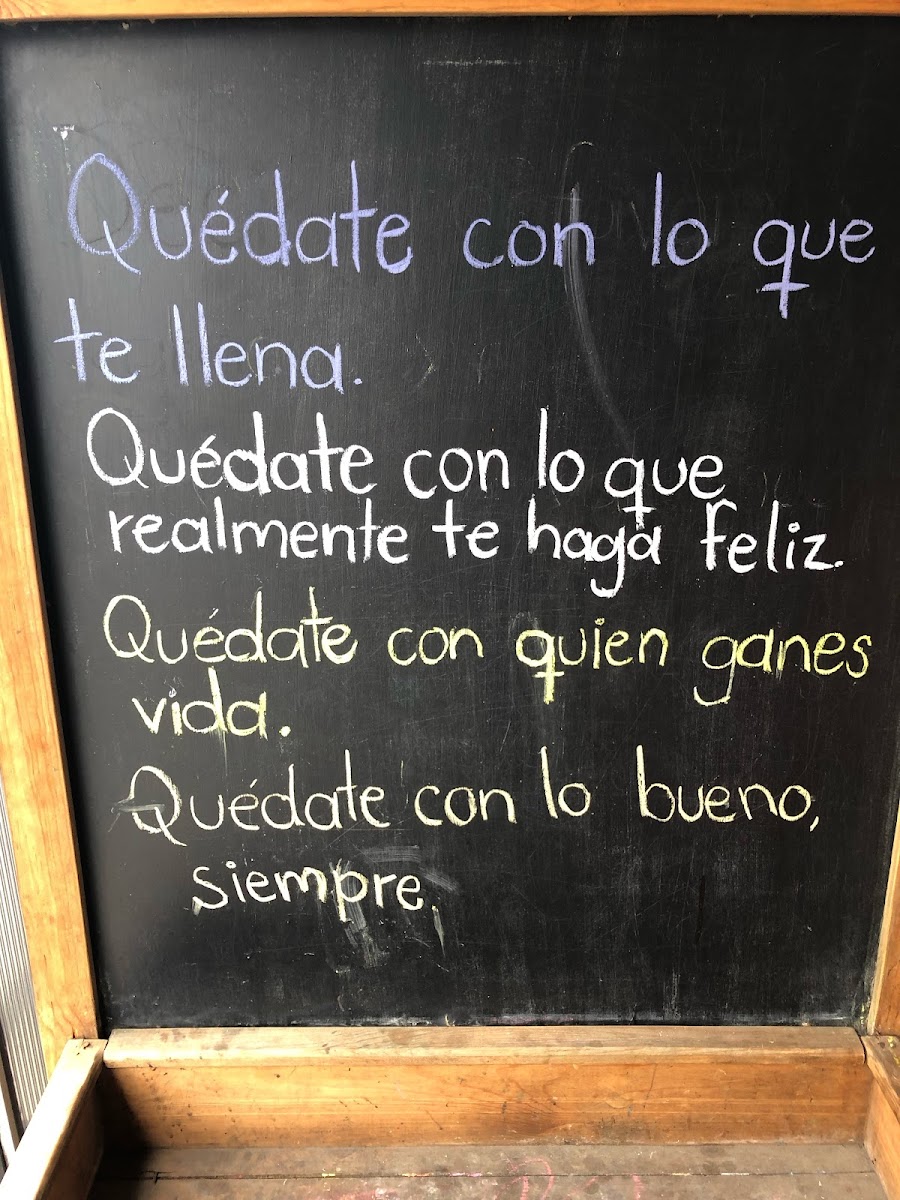 Quédate con lo que
te llena.
Quédate con lo que
realmente te haga feliz.
Quédate con quien ganes
vida.
Quédate con lo bueno,
siempre.